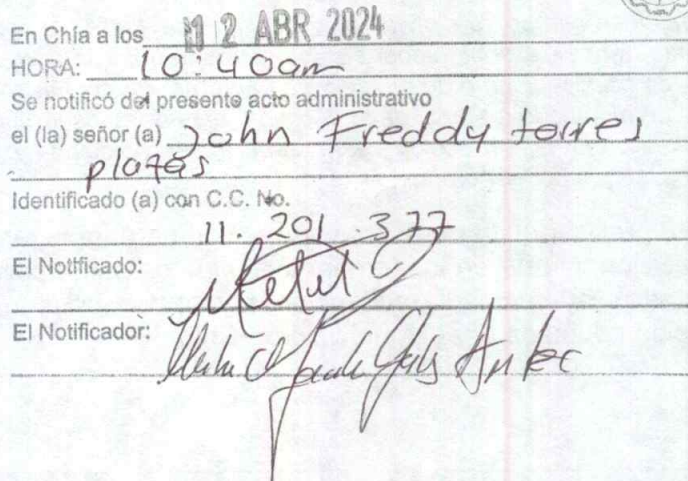 En Chía a los 12 ABR 2024
HORA: 10:40am
Se notificó del presente acto administrativo
el (la) señor (a) John Freddy torres
plazas
Identificado (a) con C.C. No.
11.201.377
El Notificado:
El Notificador: